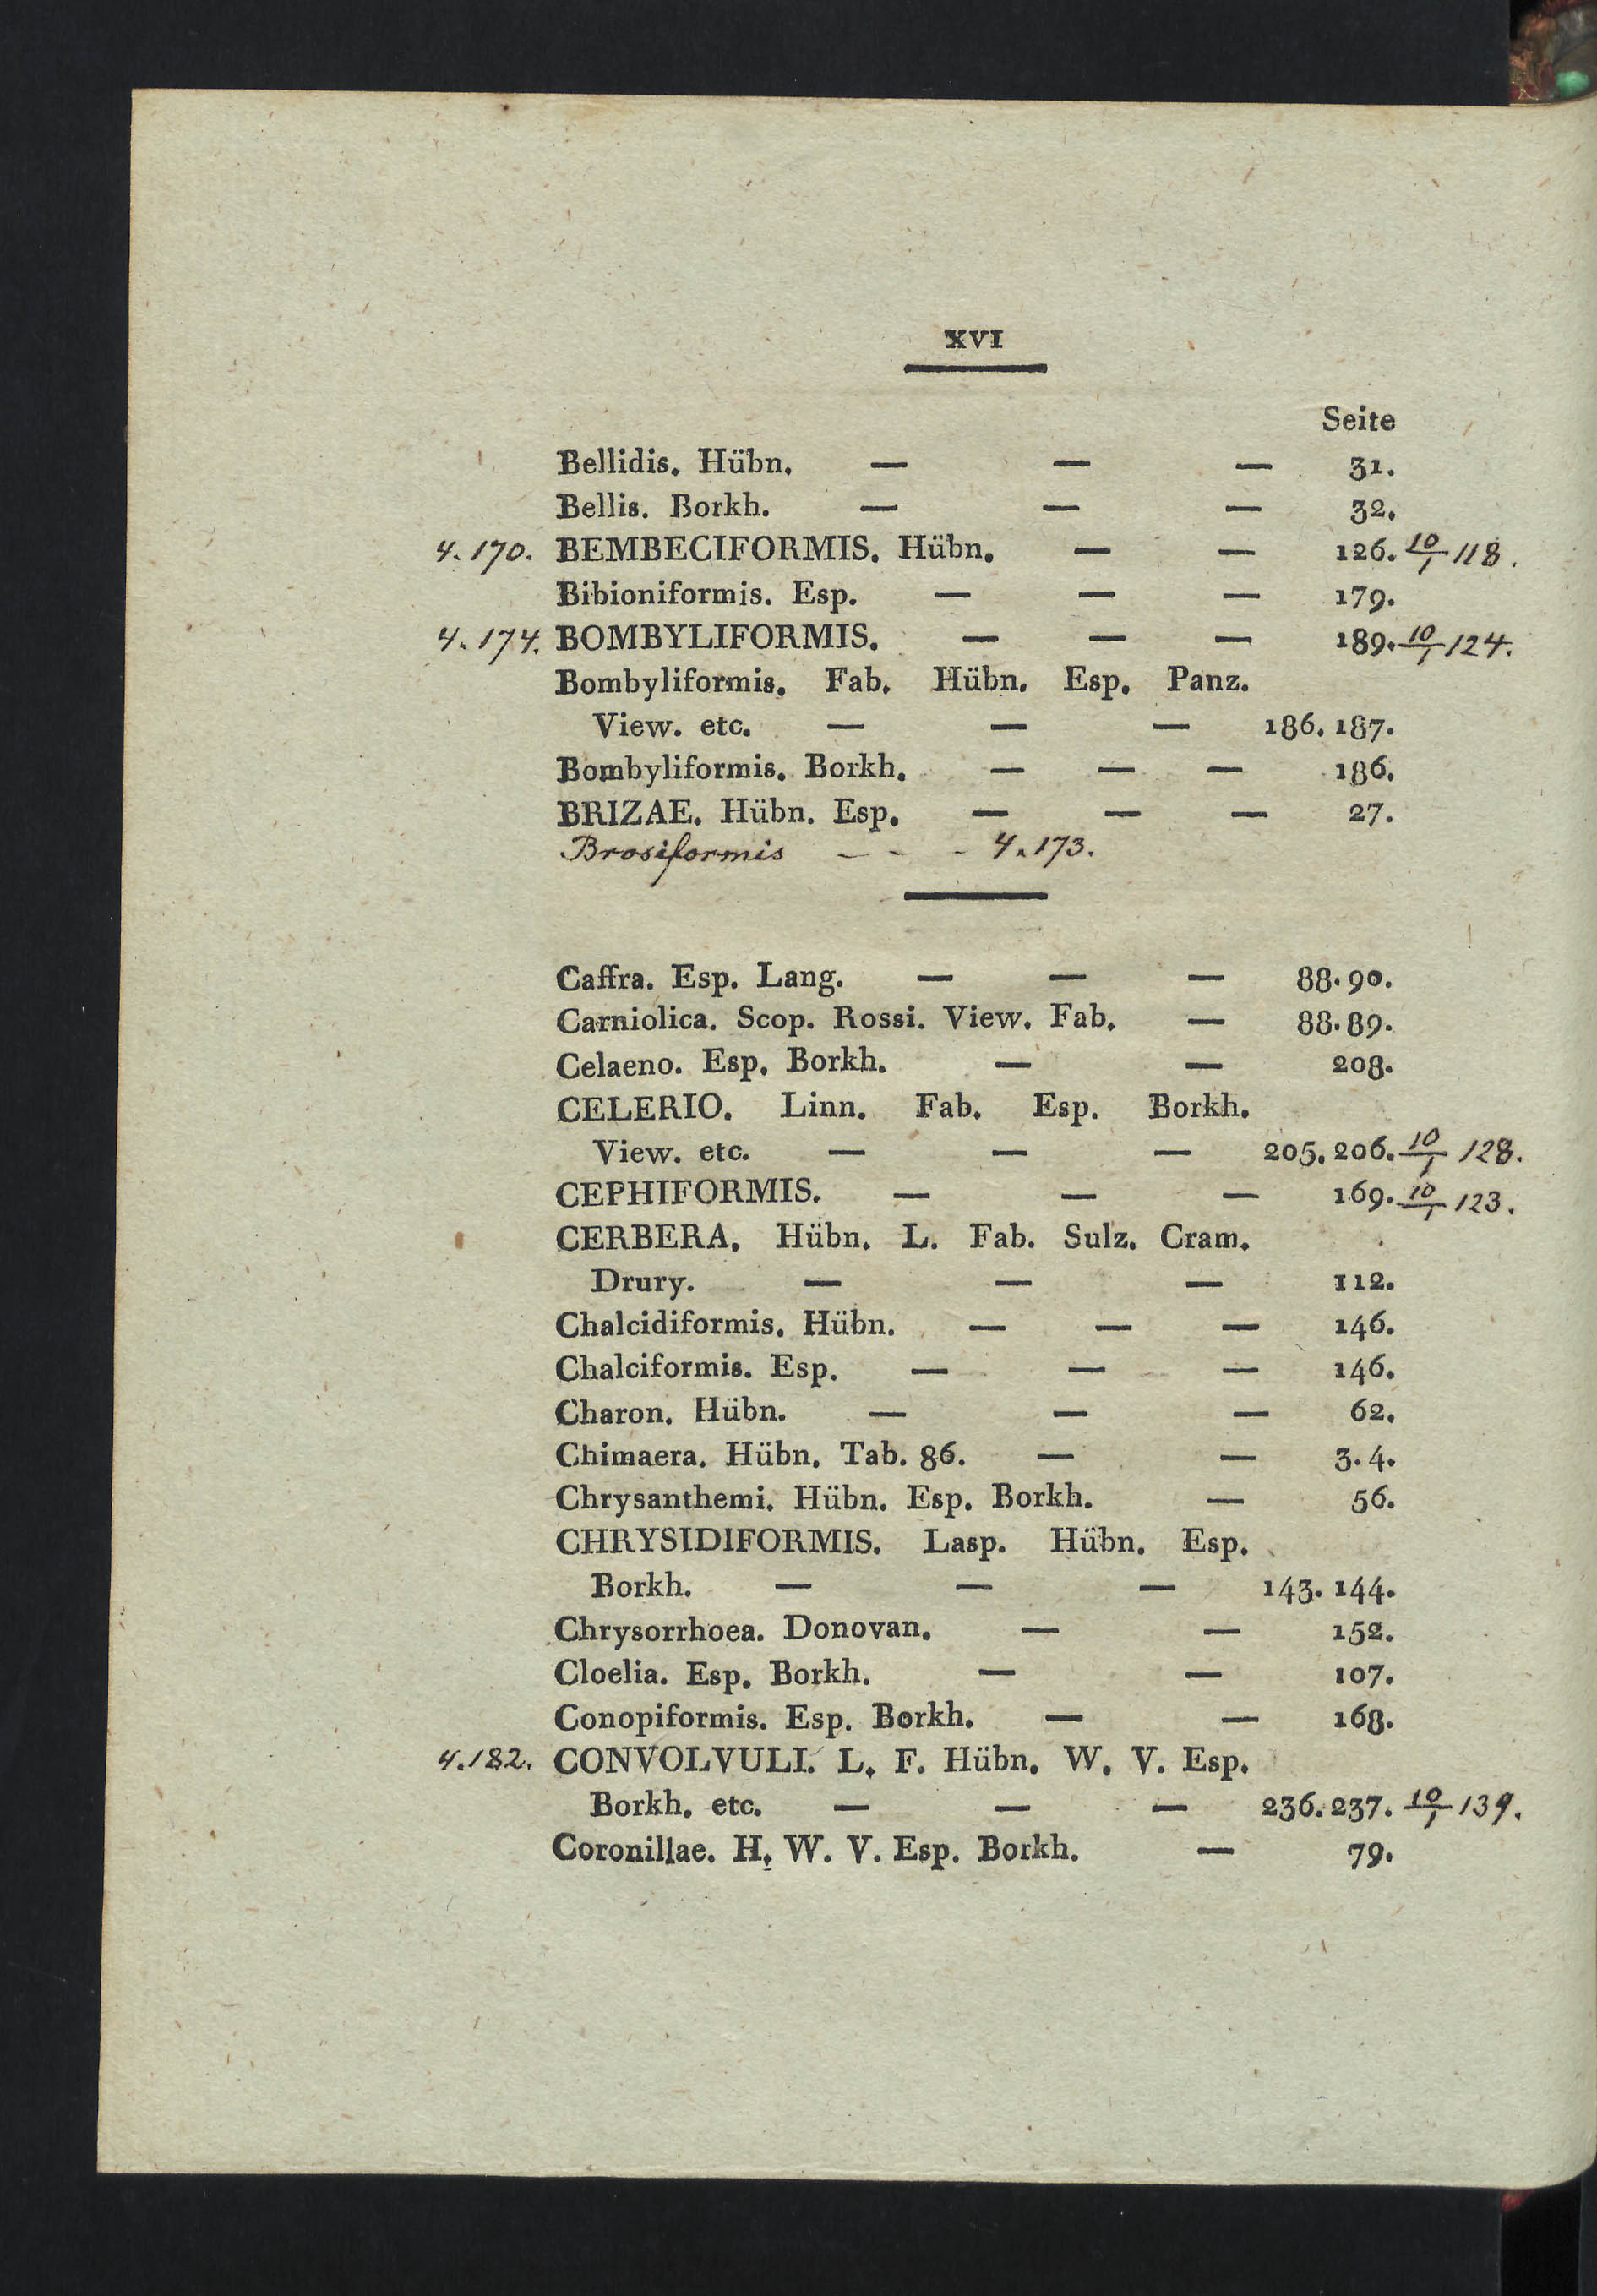 XVI
Seite
Bellidis. Hübn. — — — 31.
Bellis. Borkh. — — — 32.
4.170. BEMBECIFORMIS. Hübn. — — 126. 10/1 118.
Bibioniformis. Esp. — — — 179.
4.174. BOMBYLIFORMIS. — — — 189. 10/1 124.
Bombyliformis. Fab. Hübn. Esp. Panz.
View. etc. — — — 186. 187.
Bombyliformis. Borkh. — — — 186.
BRIZAE. Hübn. Esp. — — — 27.
Brosiformis - - - 4.173.
Caffra. Esp. Lang. — — — 88. 90.
Carniolica. Scop. Rossi. View. Fab. — 88. 89.
Celaeno. Esp. Borkh. — — 208.
CELERIO. Linn. Fab. Esp. Borkh.
View. etc. — — — 205. 206. 10/1 128.
CEPHIFORMIS. — — — 169. 10/1 123.
CERBERA. Hübn. L. Fab. Sulz. Cram.
Drury. — — — 112.
Chalcidiformis. Hübn. — — — 146.
Chalciformis. Esp. — — — 146.
Charon. Hübn. — — — 62.
Chimaera. Hübn. Tab. 86. — — 3. 4.
Chrysanthemi. Hübn. Esp. Borkh. — 56.
CHRYSIDIFORMIS. Lasp. Hübn. Esp.
Borkh. — — — 143. 144.
Chrysorrhoea. Donovan. — — 152.
Cloelia. Esp. Borkh. — — 107.
Conopiformis. Esp. Borkh. — — 168.
4.182. CONVOLVULI. L. F. Hübn. W. V. Esp.
Borkh. etc. — — — 236. 237. 10/1 139.
Coronillae. H. W. V. Esp. Borkh. — 79.